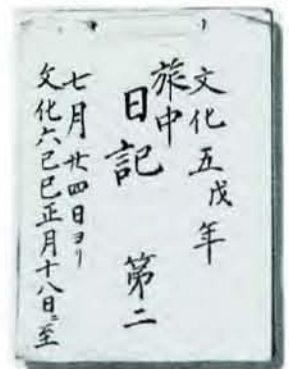 文化五戊年
旅中
日記 第二
七月廿四日ヨリ
文化六己巳正月十八日ニ至